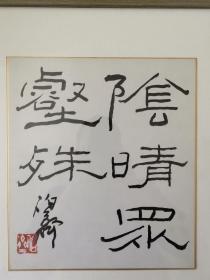 陰晴眾
壑殊